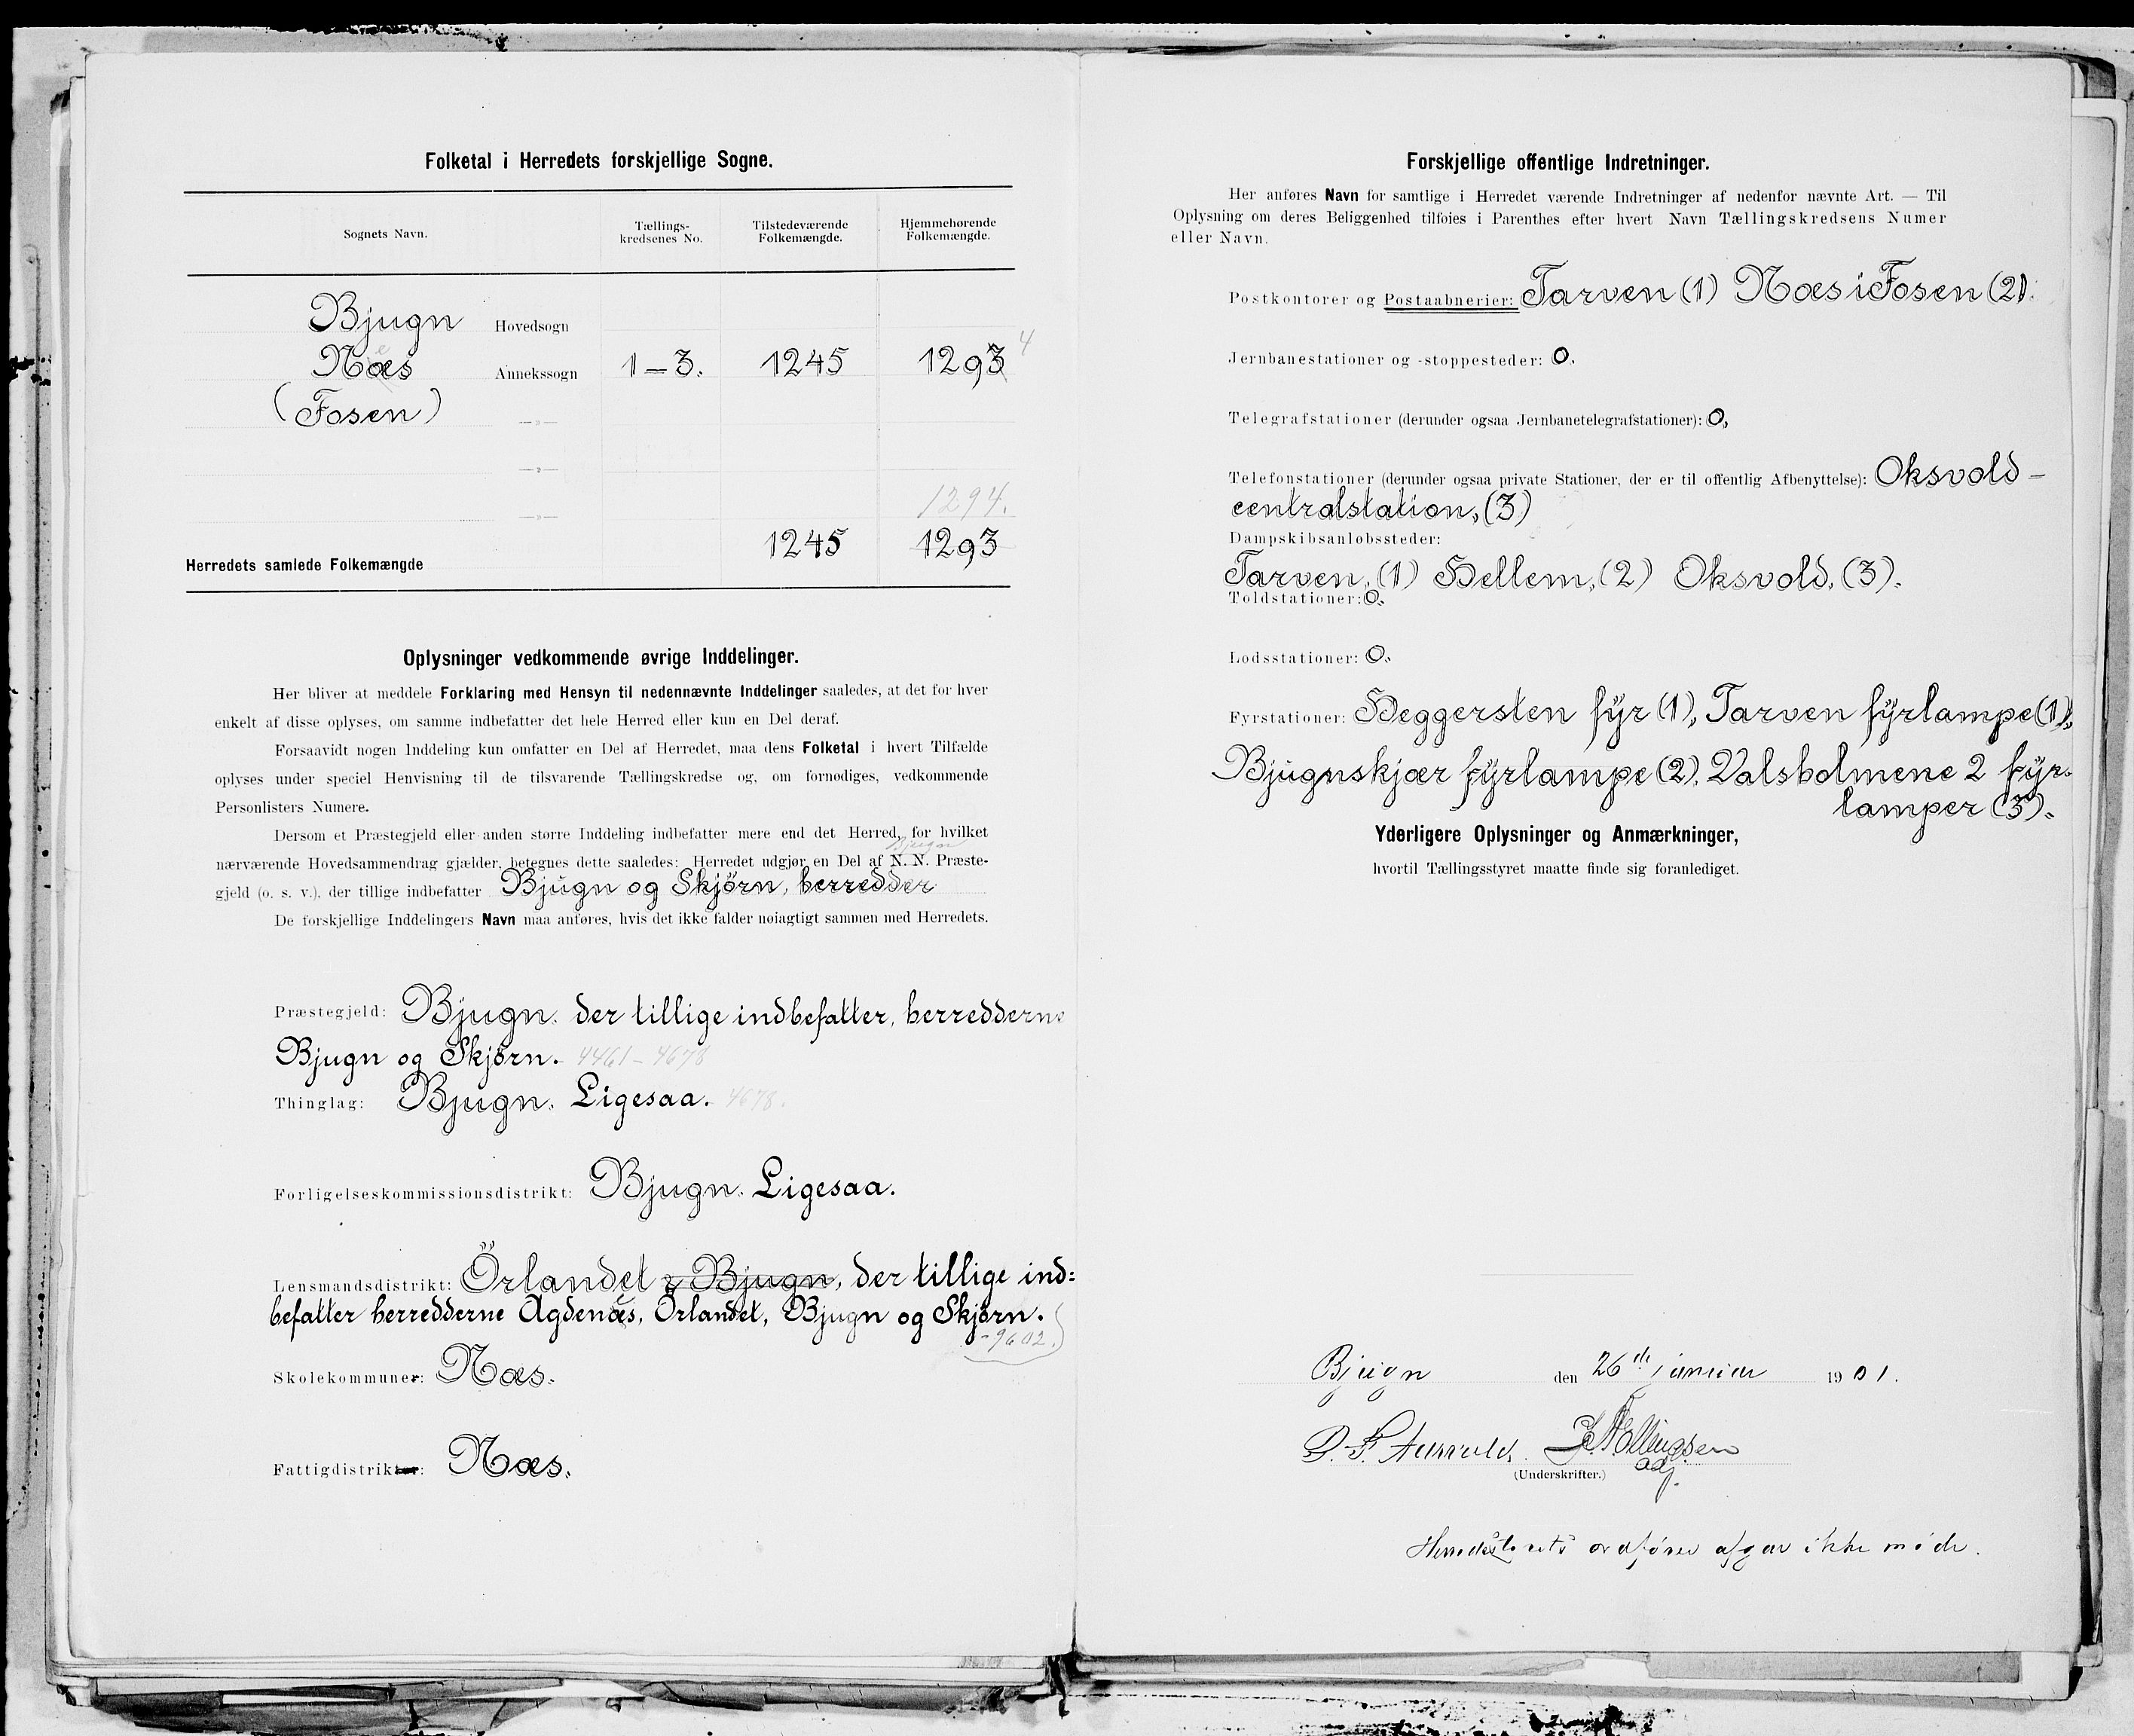 Folketal i Herredets forskjellige Sogne.
Sognets Navn. Tællings-kredsenes No. Tilstedeværende Folkemængde. Hjemmehørende Folkemængde.
Bjugn Hovedsogn
Næs Annekssogn 1–3. 1245 1293 4
(Fosen) —„—
—„—
1294.
—„—
1245 1293
Herredets samlede Folkemængde
Oplysninger vedkommende øvrige Inddelinger.
Her bliver at meddele Forklaring med Hensyn til nedennævnte Inddelinger saaledes, at det for hver
enkelt af disse oplyses, om samme indbefatter det hele Herred eller kun en Del deraf.
Forsaavidt nogen Inddeling kun omfatter en Del af Herredet, maa dens Folketal i hvert Tilfælde
oplyses under speciel Henvisning til de tilsvarende Tællingskredse og, om fornødiges, vedkommende
Personlisters Numere.
Dersom et Præstegjeld eller anden større Inddeling indbefatter mere end det Herred, for hvilket
Bjugn
nærværende Hovedsammendrag gjælder, betegnes dette saaledes: Herredet udgjør en Del af N. N. Præste-
gjeld (o. s. v.), der tillige indbefatter Bjugn og Skjörn, herredder
De forskjellige Inddelingers Navn maa anføres, hvis det ikke falder nøiagtigt sammen med Herredets.
Præstegjeld: Bjugn. der tillige indbefatter, herredderne
Bjugn og Skjörn. 4461–4678
Thinglag: Bjugn. Ligesaa. 4678.
Forligelseskommissionsdistrikt: Bjugn. Ligesaa.
Lensmandsdistrikt: Örlandet & Bjugn, der tillige ind=
befatter herredderne Agdenæs, Örlandet, Bjugn og Skjörn.
-9602.
Skolekommuner: Næs.
Fattigdistrikter: Næs.
Forskjellige offentlige Indretninger.
Her anføres Navn for samtlige i Herredet værende Indretninger af nedenfor nævnte Art. — Til
Oplysning om deres Beliggenhed tilføies i Parenthes efter hvert Navn Tællingskredsens Numer
eller Navn.
Postkontorer og Postaabnerier: Tarven (1) Næs i Fosen (2).
Jernbanestationer og -stoppesteder: 0.
Telegrafstationer (derunder ogsaa Jernbanetelegrafstationer): 0,
Telefonstationer (derunder ogsaa private Stationer, der er til offentlig Afbenyttelse): Oksvold –
centralstation, (3)
Dampskibsanløbssteder:
Tarven, (1) Hellem, (2) Oksvold, (3).
Toldstationer: 0.
Lodsstationer: 0.
Fyrstationer: Heggersten fÿr (1), Tarven fÿrlampe (1),
Bjugnskjær fÿrlampe (2), Valsholmene 2 fÿr-
lamper (3).
Yderligere Oplysninger og Anmærkninger,
hvortil Tællingsstyret maatte finde sig foranlediget.
Bjugn den 26de januar 1901.
(Underskrifter.)
Herredsstyrets ordfører afgav ikke møde.